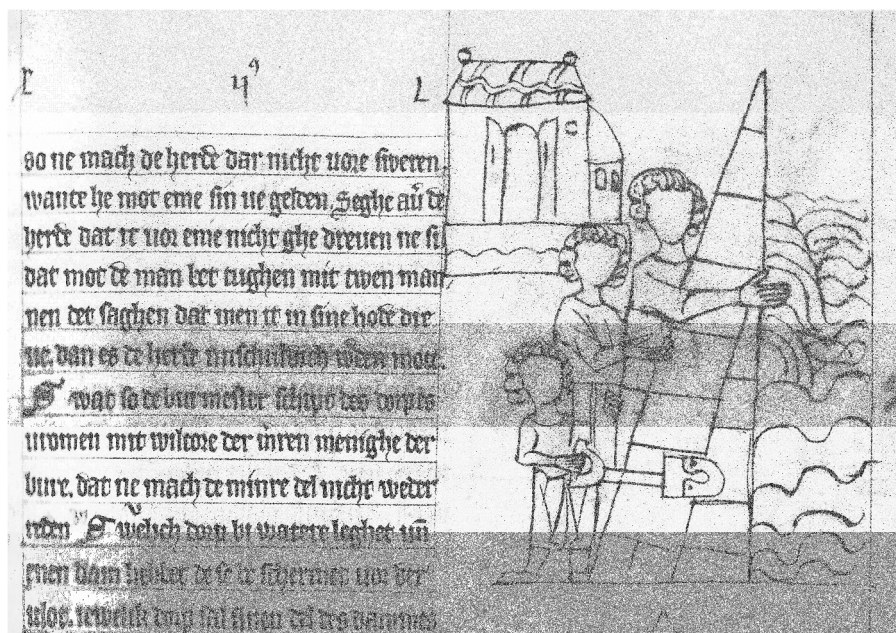 so ne mach de herde dar nicht uore sweren
wante he mot eme sin ue gelden. Seghe au̅ de
herde dat it uor eme nicht ghe dreuen ne si
dat mot de man bet tughen mit twen man
nen det saghen dat men it in sine hode dre
ue. dan es de herde unschuldich
S wat so de bur mester schipt des dorpes
uromen mit wilcore der meren menighe der
bure. dat ne mach de minre del nicht weder
reden S welich dorp bi watere leghet un̅
enen dam hebbet de se be schermet uor der
ulot. iewelik dorp sal sinen del des dammes